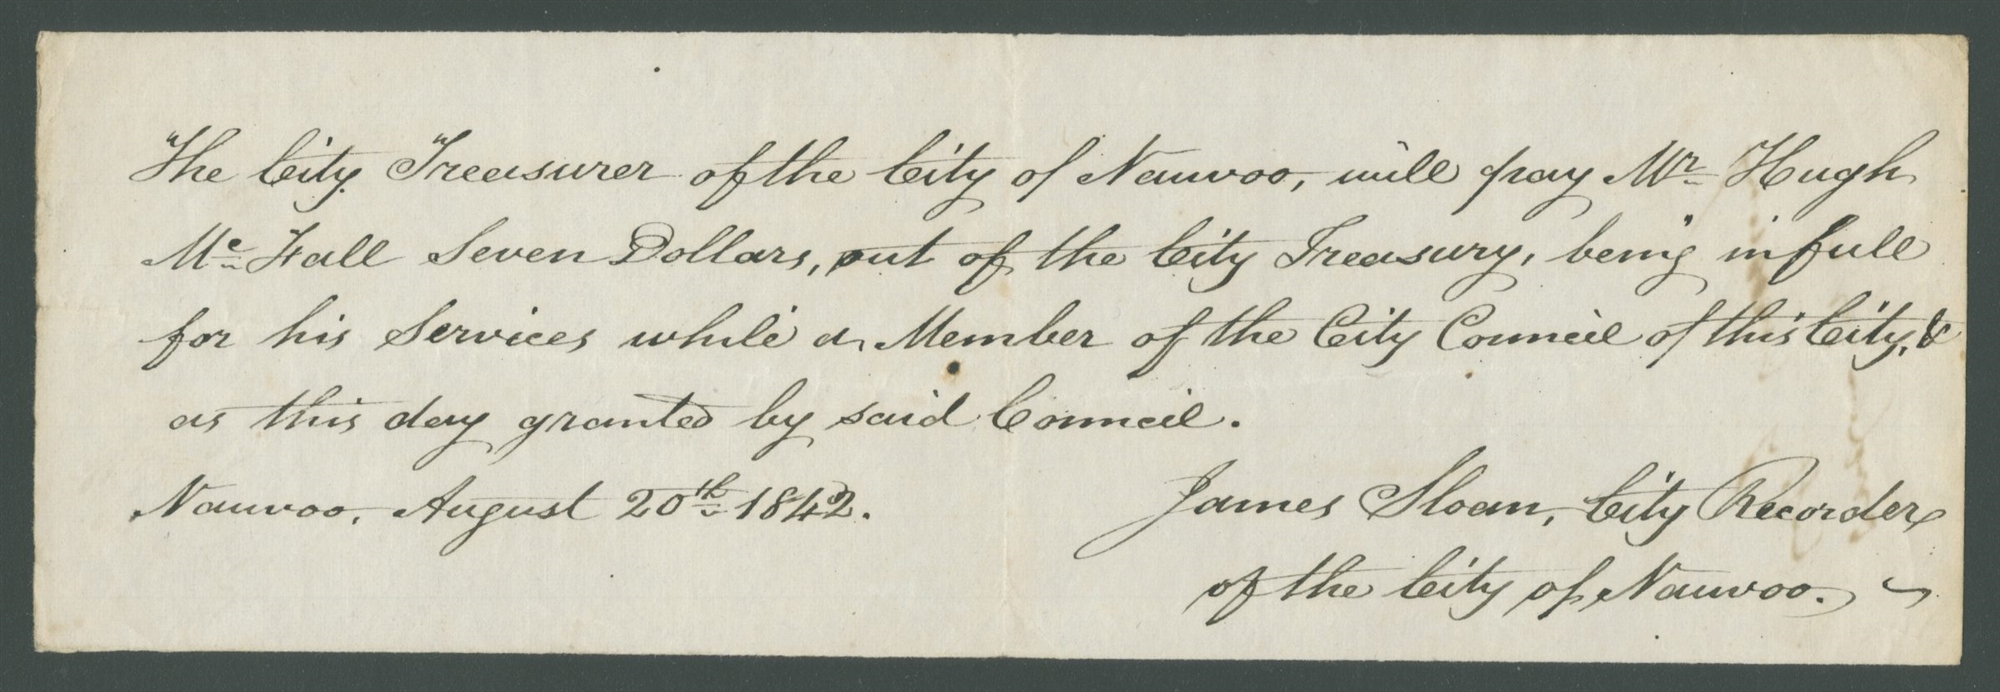 The City Treasurer of the City of Nauvoo, will pay Mr. Hugh
Mc. Fall Seven Dollars, out of the City Treasury, being in full
for his Services while a Member of the City Council of this City, &
as this day granted by said Council.
Nauvoo, August 20th. 1842.
James Sloan, City Recorder
of the City of Nauvoo.